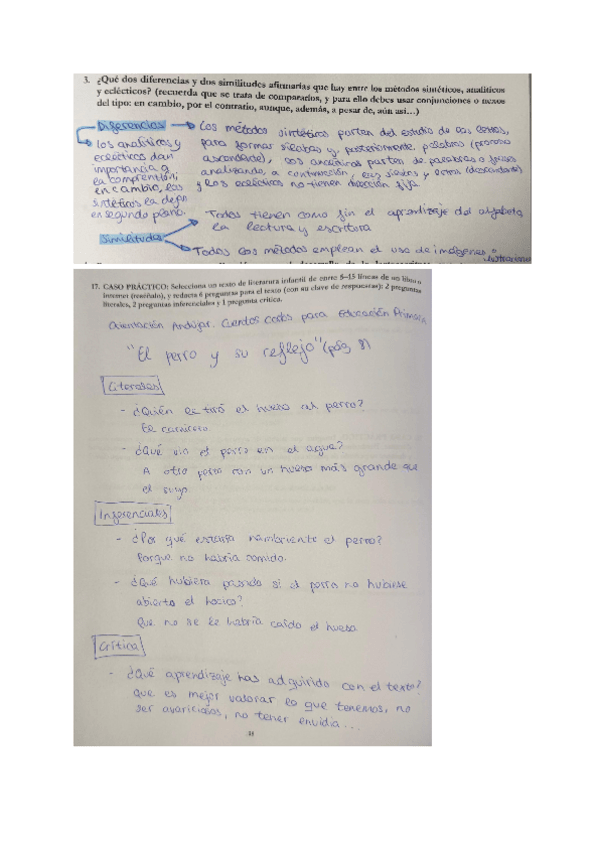 3. ¿Qué dos diferencias y dos similitudes afirmarías que hay entre los métodos sintéticos, analíticos
y eclécticos? (recuerda que se trata de compararlos, y para ello debes usar conjunciones o nexos
del tipo: en cambio, por el contrario, aunque, además, a pesar de, aún así...)
Diferencias
Los métodos sintéticos parten del estudio de las letras,
para formar sílabas y, posteriormente, palabras (proceso
ascendente), los analíticos parten de palabras o frases
analizando, a continuación, las sílabas y letras (descendente)
y los eclécticos no tienen dirección fija.
los analíticos y
eclécticos dan
importancia a
la comprensión;
en cambio, los
sintéticos la dejan
en segundo plano.
Similitudes
Todos tienen como fin el aprendizaje del alfabeto,
la lectura y escritura
Todos los métodos emplean el uso de imágenes o
ilustraciones
17. CASO PRÁCTICO: Selecciona un texto de literatura infantil de entre 5-15 líneas de un libro o
internet (reséñalo), y redacta 6 preguntas para el texto (con su clave de respuestas): 2 preguntas
literales, 2 preguntas inferenciales y 1 pregunta crítica.
Orientación Andújar. Cuentos Cortos para Educación Primaria
"El perro y su reflejo" (pág, 8)
Literales
- ¿Quién le tiró el hueso al perro?
El carnicero
- ¿Qué vio el perro en el agua?
A otro perro con un hueso más grande que
el suyo.
Inferenciales
- ¿Por qué estaba hambriento el perro?
Porque no habría comido.
- ¿Qué hubiera pasado si el perro no hubiese
abierto el hocico?
Que no se le habría caído el hueso
Crítica
- ¿Qué aprendizaje has adquirido con el texto?
Que es mejor valorar lo que tenemos, no
ser avariciosos, no tener envidia...